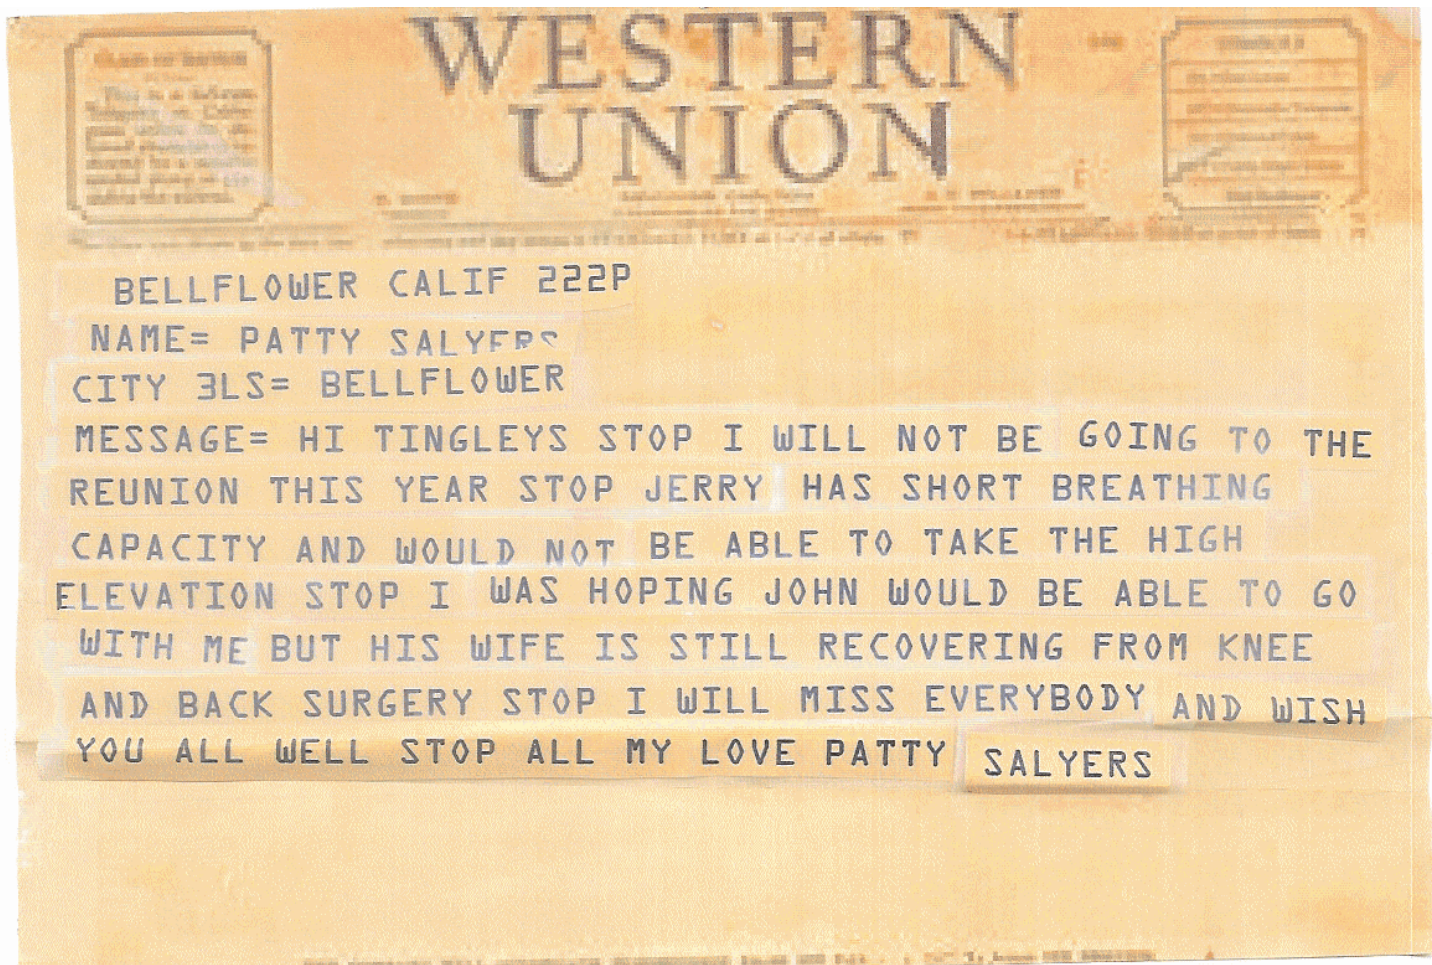 WESTERN
UNION
BELLFLOWER CALIF 222P
NAME= PATTY SALYERS
CITY 3LS= BELLFLOWER
MESSAGE= HI TINGLEYS STOP I WILL NOT BE GOING TO THE
REUNION THIS YEAR STOP JERRY HAS SHORT BREATHING
CAPACITY AND WOULD NOT BE ABLE TO TAKE THE HIGH
ELEVATION STOP I WAS HOPING JOHN WOULD BE ABLE TO GO
WITH ME BUT HIS WIFE IS STILL RECOVERING FROM KNEE
AND BACK SURGERY STOP I WILL MISS EVERYBODY AND WISH
YOU ALL WELL STOP ALL MY LOVE PATTY SALYERS